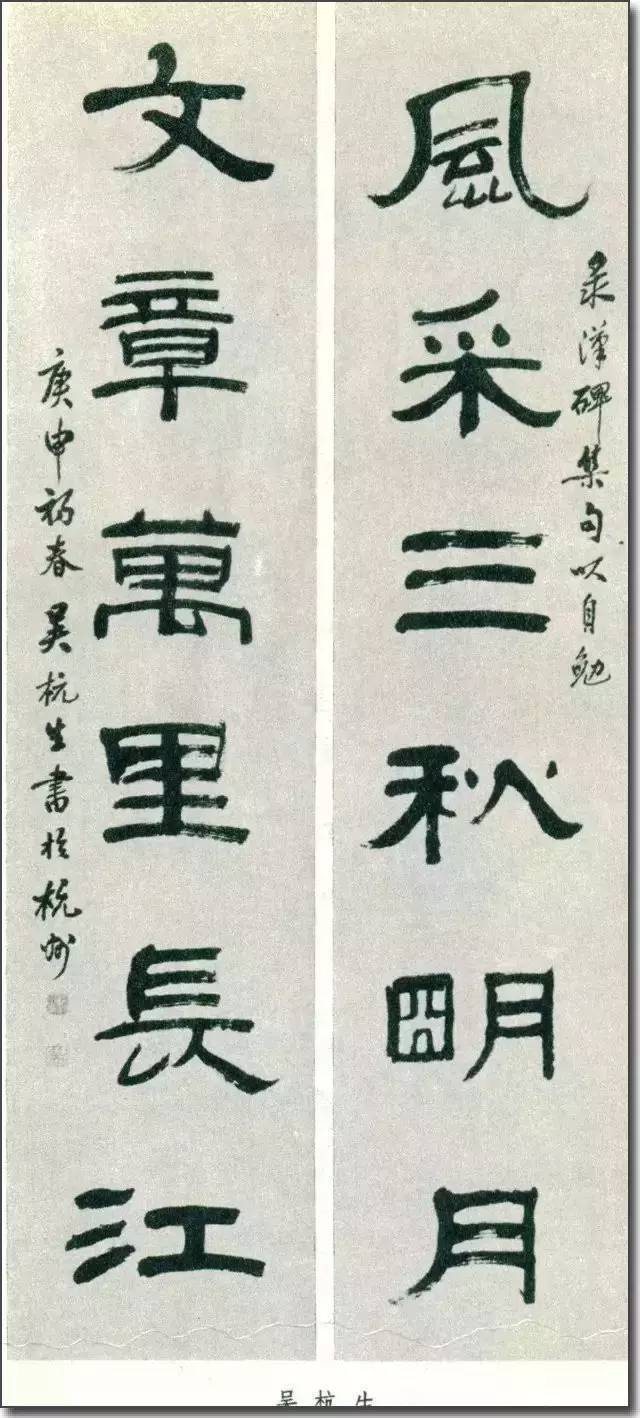 录漢碑集句以自勉
風采三秋朙月
文章萬里長江
庚申初春吴杭生書於杭州
吴杭生